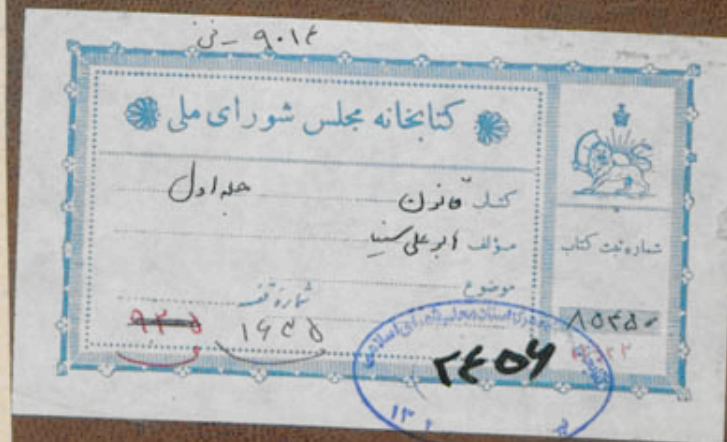 ۹۰۱۴ - فی
کتابخانه مجلس شورای ملی
کتاب قانون جلد اول
مؤلف ابو علی سینا
موضوع
شماره قفسه
۹۳۵
۱۶۳۵
شماره ثبت کتاب
۸۵۳۵۰
۲۴۵۶